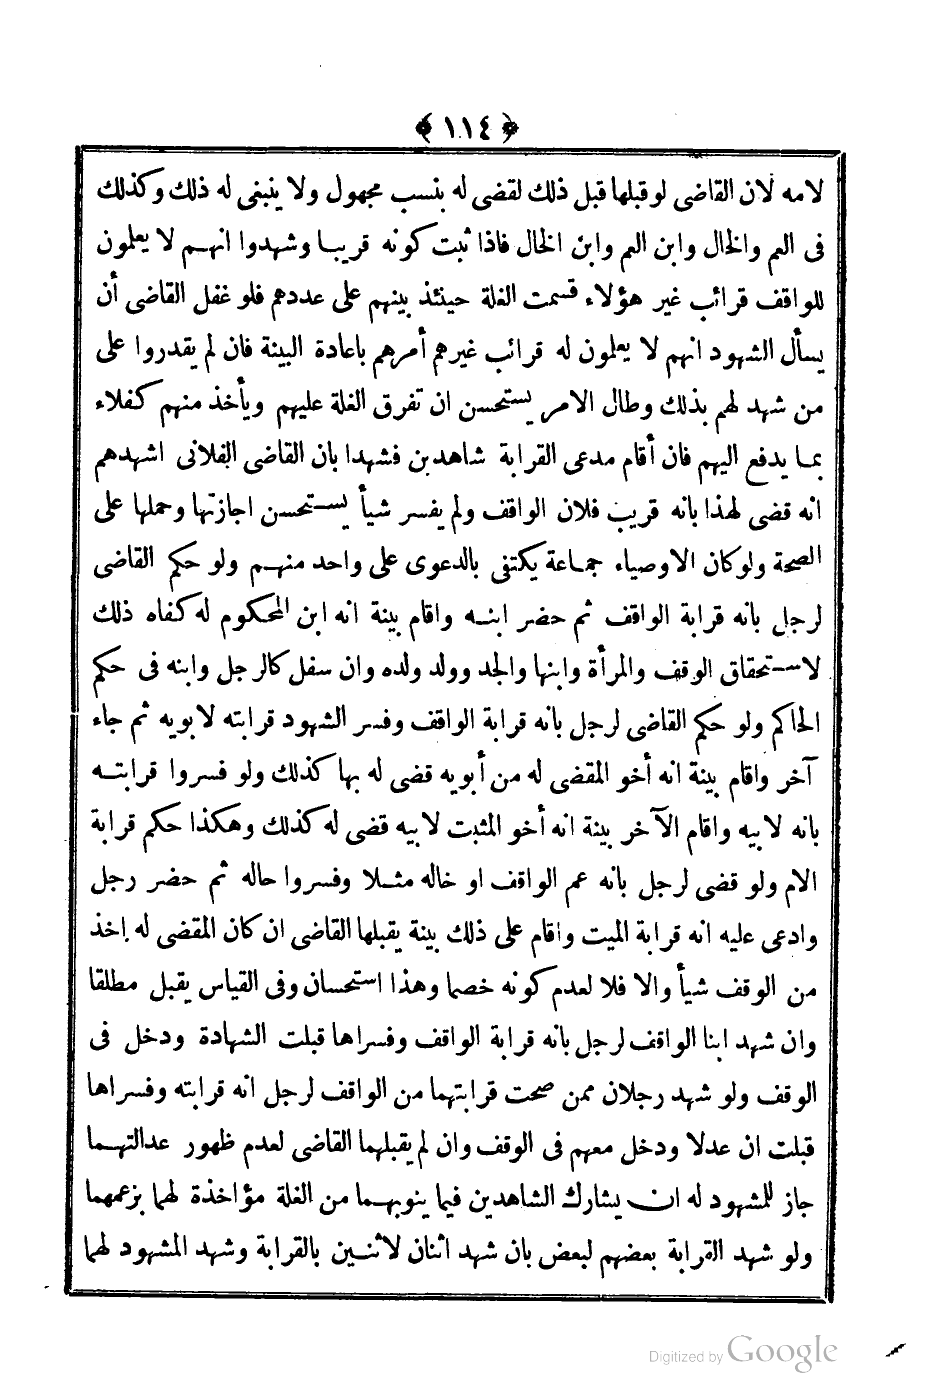 ﴿ ١١٤ ﴾
لامه لان القاضى لو قبلها قبل ذلك لقضى له بنسب مجهول ولا ينبغى له ذلك وكذلك
فى العم والخال وابن العم وابن الخال فاذا ثبت كونه قريبا وشهدوا انهم لا يعلمون
للواقف قرائب غير هؤلاء قسمت الغلة حينئذ بينهم على عددهم فلو غفل القاضى أن
يسأل الشهود انهم لا يعلمون له قرائب غيرهم أمرهم باعادة البينة فان لم يقدروا على
من شهد لهم بذلك وطال الامر يستحسن ان تفرق الغلة عليهم ويأخذ منهم كفلاء
بما يدفع اليهم فان أقام مدعى القرابة شاهدين فشهدا بان القاضى الفلانى اشهدهم
انه قضى لهذا بانه قريب فلان الواقف ولم يفسر شيأ يستحسن اجازتها وحملها على
الصحة ولو كان الاوصياء جماعة يكتفى بالدعوى على واحد منهم ولو حكم القاضى
لرجل بانه قرابة الواقف ثم حضر ابنه واقام بينة انه ابن المحكوم له كفاه ذلك
لاستحقاق الوقف والمرأة وابنها والجد وولد ولده وان سفل كالرجل وابنه فى حكم
الحاكم ولو حكم القاضى لرجل بانه قرابة الواقف وفسر الشهود قرابته لابويه ثم جاء
آخر واقام بينة انه أخو المقضى له من أبويه قضى له بها كذلك ولو فسروا قرابته
بانه لابيه واقام الآخر بينة انه أخو المثبت لابيه قضى له كذلك وهكذا حكم قرابة
الام ولو قضى لرجل بانه عم الواقف او خاله مثلا وفسروا حاله ثم حضر رجل
وادعى عليه انه قرابة الميت واقام على ذلك بينة يقبلها القاضى ان كان المقضى له اخذ
من الوقف شيأ والا فلا لعدم كونه خصما وهذا استحسان وفى القياس يقبل مطلقا
وان شهد ابنا الواقف لرجل بانه قرابة الواقف وفسراها قبلت الشهادة ودخل فى
الوقف ولو شهد رجلان ممن صحت قرابتهما من الواقف لرجل انه قرابته وفسراها
قبلت ان عدلا ودخل معهم فى الوقف وان لم يقبلهما القاضى لعدم ظهور عدالتهما
جاز للمشهود له ان يشارك الشاهدين فيما ينوبهما من الغلة مؤاخذة لهما بزعمهما
ولو شهد القرابة بعضهم لبعض بان شهد اثنان لاثنين بالقرابة وشهد المشهود لهما
Digitized by Google